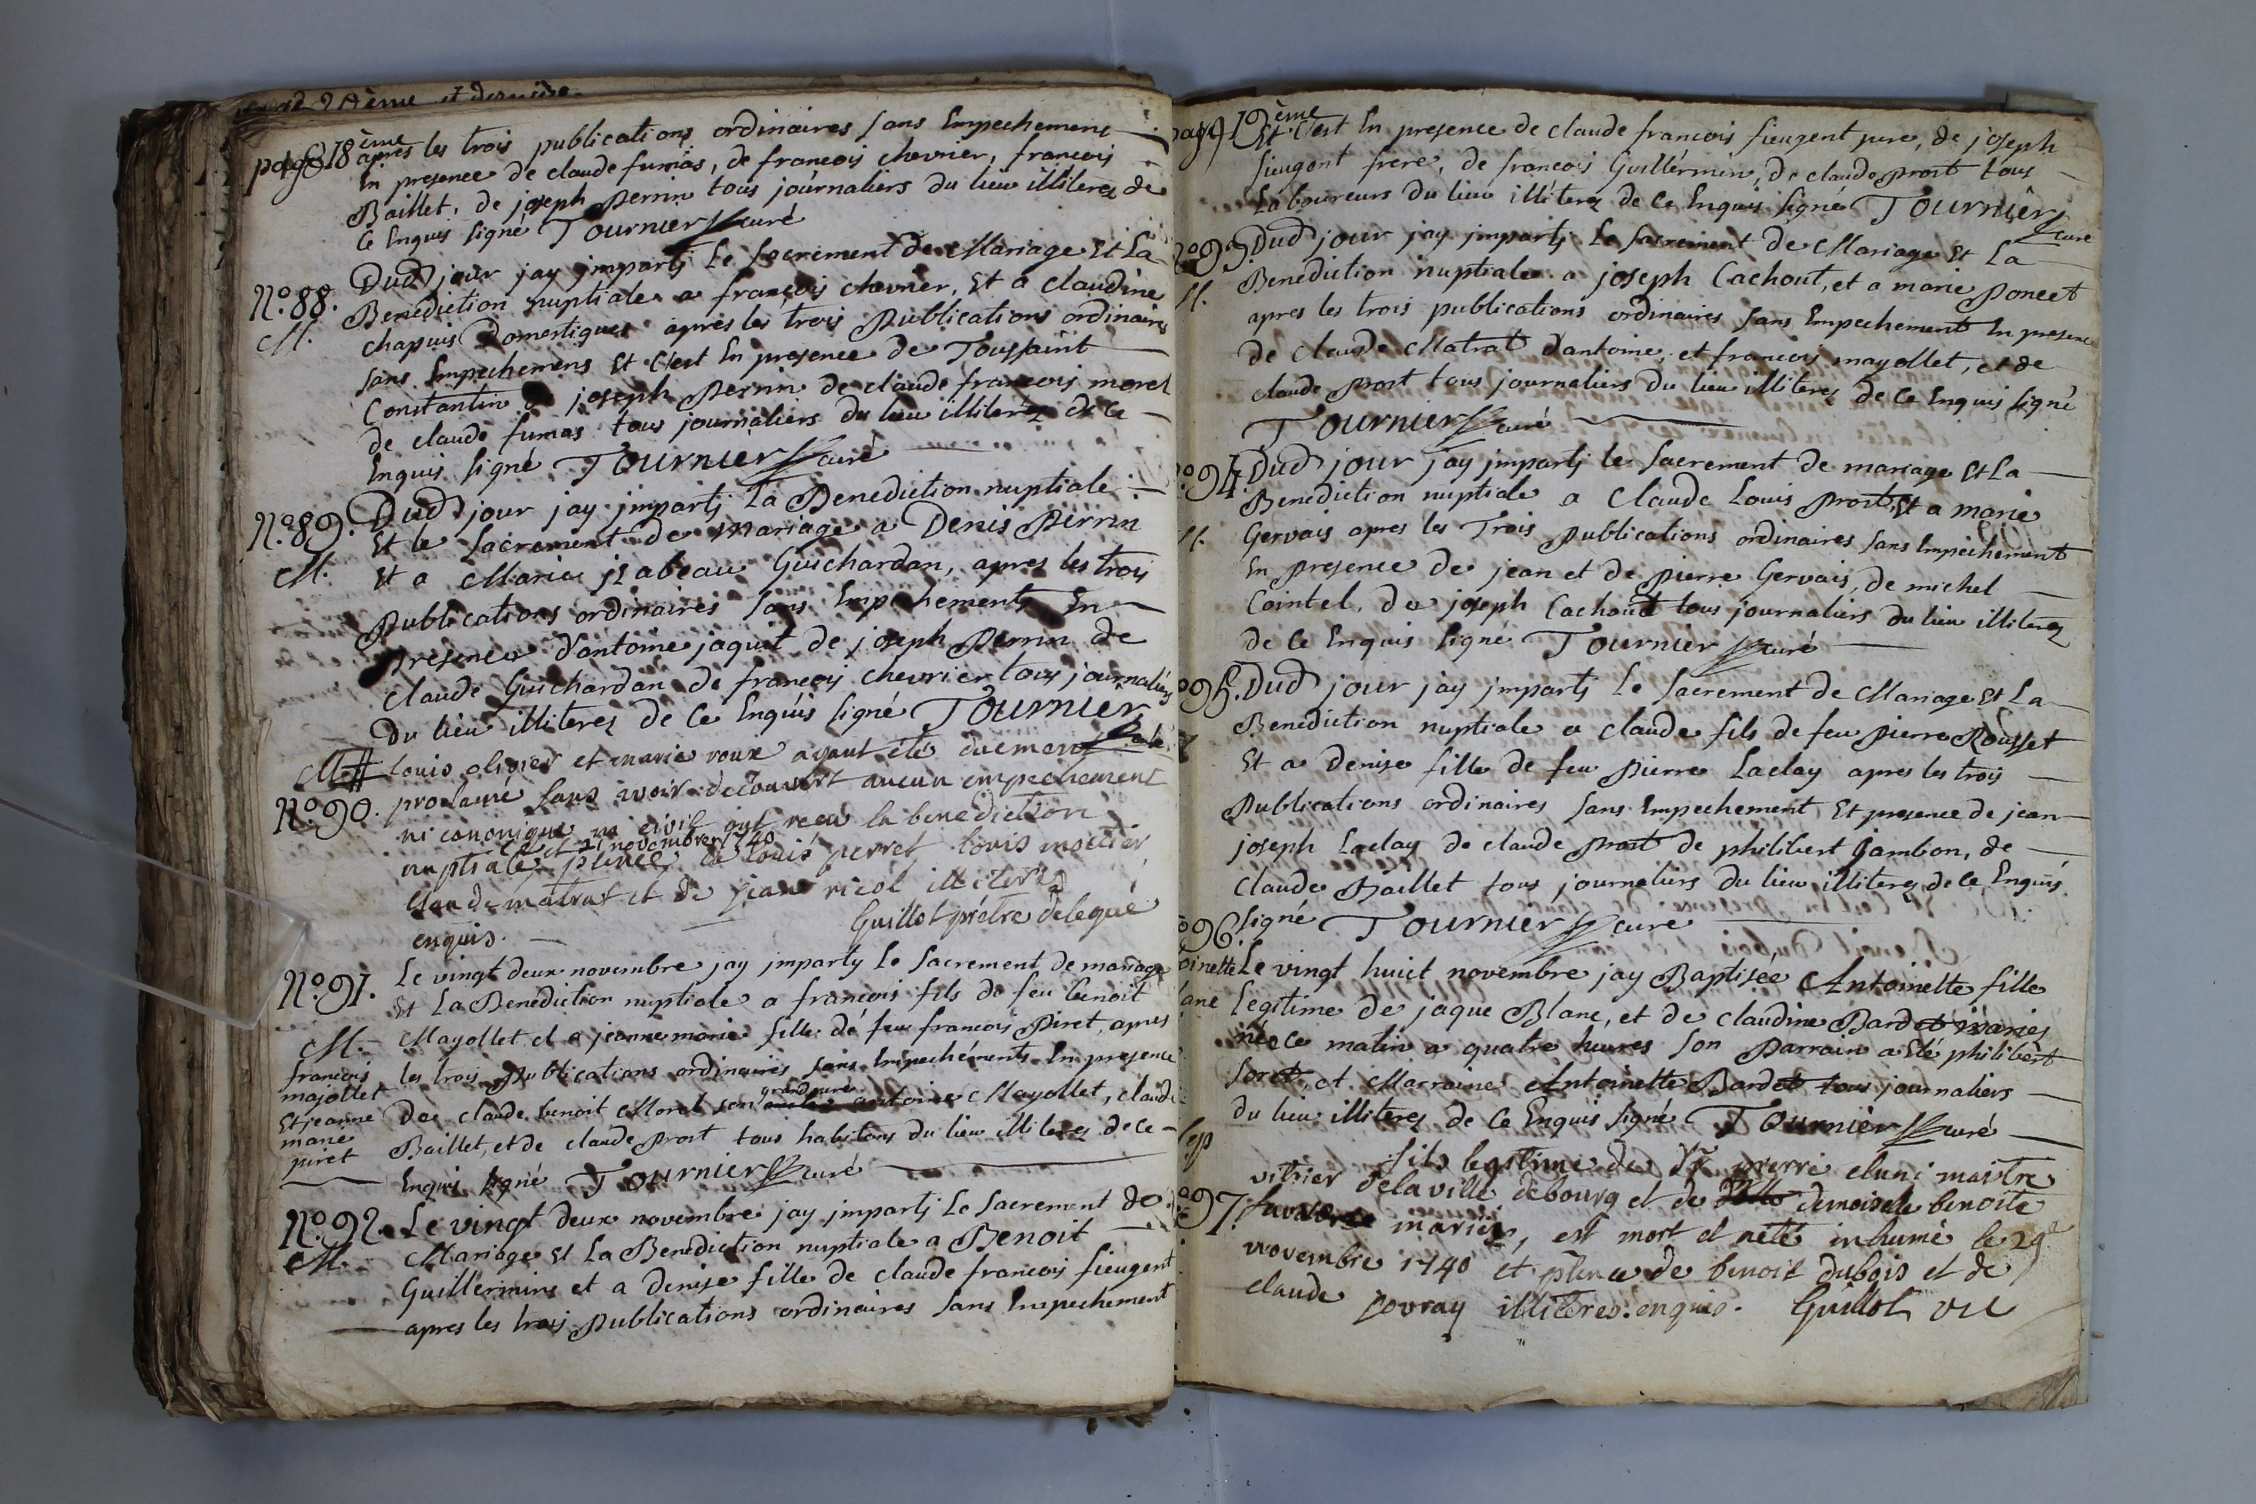 page 18ème
après les trois publications ordinaires sans Empechement
En presence de claude fumas, de francois chevrier, francois
Baillet, de joseph Perrin tous journaliers du lieu illiterez de
Ce Enquis signé Tournier curé
N.o 88.
M.
Dud jour jay imparti Le Sacrement de Mariage Et La
Benediction nuptiale a francois chevrier, Et a claudine
chapuis Domestiques apres les trois Publications ordinaires
sans Empechemens Et C'est En presence de Toussaint
Constantin joseph Perrin de claude francois morel
de claude fumas tous journaliers du lieu illiterez de Ce
Enquis signé Tournier curé
N.o 89.
M.
Dud jour jay imparti La Benediction nuptiale
Et le Sacrement de Mariage a Denis Perrin
Et a Marie jzabeau Guichardan, apres les trois
Publications ordinaires sans Empechements En
Presence d'antoine jaquit de joseph Perrin de
Claude Guichardan de francois chevrier tous journaliers
Du lieu illiterez de Ce Enquis signé Tournier
M.
N.o 90.
louis olivier et marie roux ayant été duement
proclamé sans avoir decouvert aucun empechement
ni canonique ni civil ont recu la benediction
ce 21 novembre 1740
nuptiale et pnce de louis perret louis mercier
claude matrat et de jean nicol illiterés
enquis. Guillot prêtre delegué
N.o 91.
M.
francois
majollet
Et jeanne
marie
piret
Le vingt deux novembre jay imparty Le Sacrement de mariage
Et La Benediction nuptiale a francois fils de feu benoit
Mayollet et a jeanne marie fille de feu francois Piret, apres
les trois Publications ordinaires sans Empechéments En presence
grand pere
de claude benoit Morel son antoine Mayollet, claude
Baillet, et de claude Prost tous habitans du lieu illiterez de ce
Enquis signé Tournier curé
N.o 92.
M.
Le vingt deux novembre jay imparti Le Sacrement de
Mariage Et La Benediction nuptiale a Benoit
Guillermin et a denise fille de claude francois fieugent
apres les trois Publications ordinaires sans Empechement
page 19ème
Et C'est En presence de claude francois fieugent pere, de joseph
fieugent frere, de francois Guillermin, de claude Prost tous
Laboureurs du lieu illiterez de Ce Enquis signé Tournier curé
N.o 93.
M.
Dud jour jay imparti Le Sacrement de Mariage Et La
Benediction nuptiale a joseph Cachout, et a marie Poncet
apres les trois publications ordinaires sans Empechement En presence
de Claude Matrat d'antoine, et francois mayollet, et de
claude Prost tous journaliers du lieu illiterez de Ce Enquis signé
Tournier curé
94.
Dud jour jay imparti le Sacrement de mariage Et La
Benediction nuptiale a Claude Louis Prost, Et a marie
Gervais apres les Trois Publications ordinaires sans Empechement
En presence de jean et de Pierre Gervais, de michel
Cointel, de joseph Cachout tous journaliers du lieu illiterez
de Ce Enquis signé Tournier curé
95.
Dud jour jay imparti Le Sacrement de Mariage Et La
Benediction nuptiale a claude fils de feu Pierre Rousset
Et a denise fille de feu Pierre Laclay apres les trois
Publications ordinaires sans Empechement Et presence de jean
joseph Laclay de claude Prost de philibert Jambon, de
Claude Baillet tous journaliers du lieu illiterez de Ce Enquis
signé Tournier curé
96.
Le vingt huict novembre jay Baptisée Antoinette fille
Legitime de jaque Blanc, et de claudine Bardet mariés
née Ce matin a quatre heures son Parrain a Eté philibert
soret, et Marraine Antoinette Bardet tous journaliers
du lieu illiterez de Ce Enquis signé Tournier curé
97.
fils legitime de Sr pierre cluni maitre
vitrier dela ville de bourg et de demoiselle benoite
mariés, est mort et a été inhumé le 29e
novembre 1740 et pnce de benoit dubois et de
claude illiteres enquis. Guillot vic